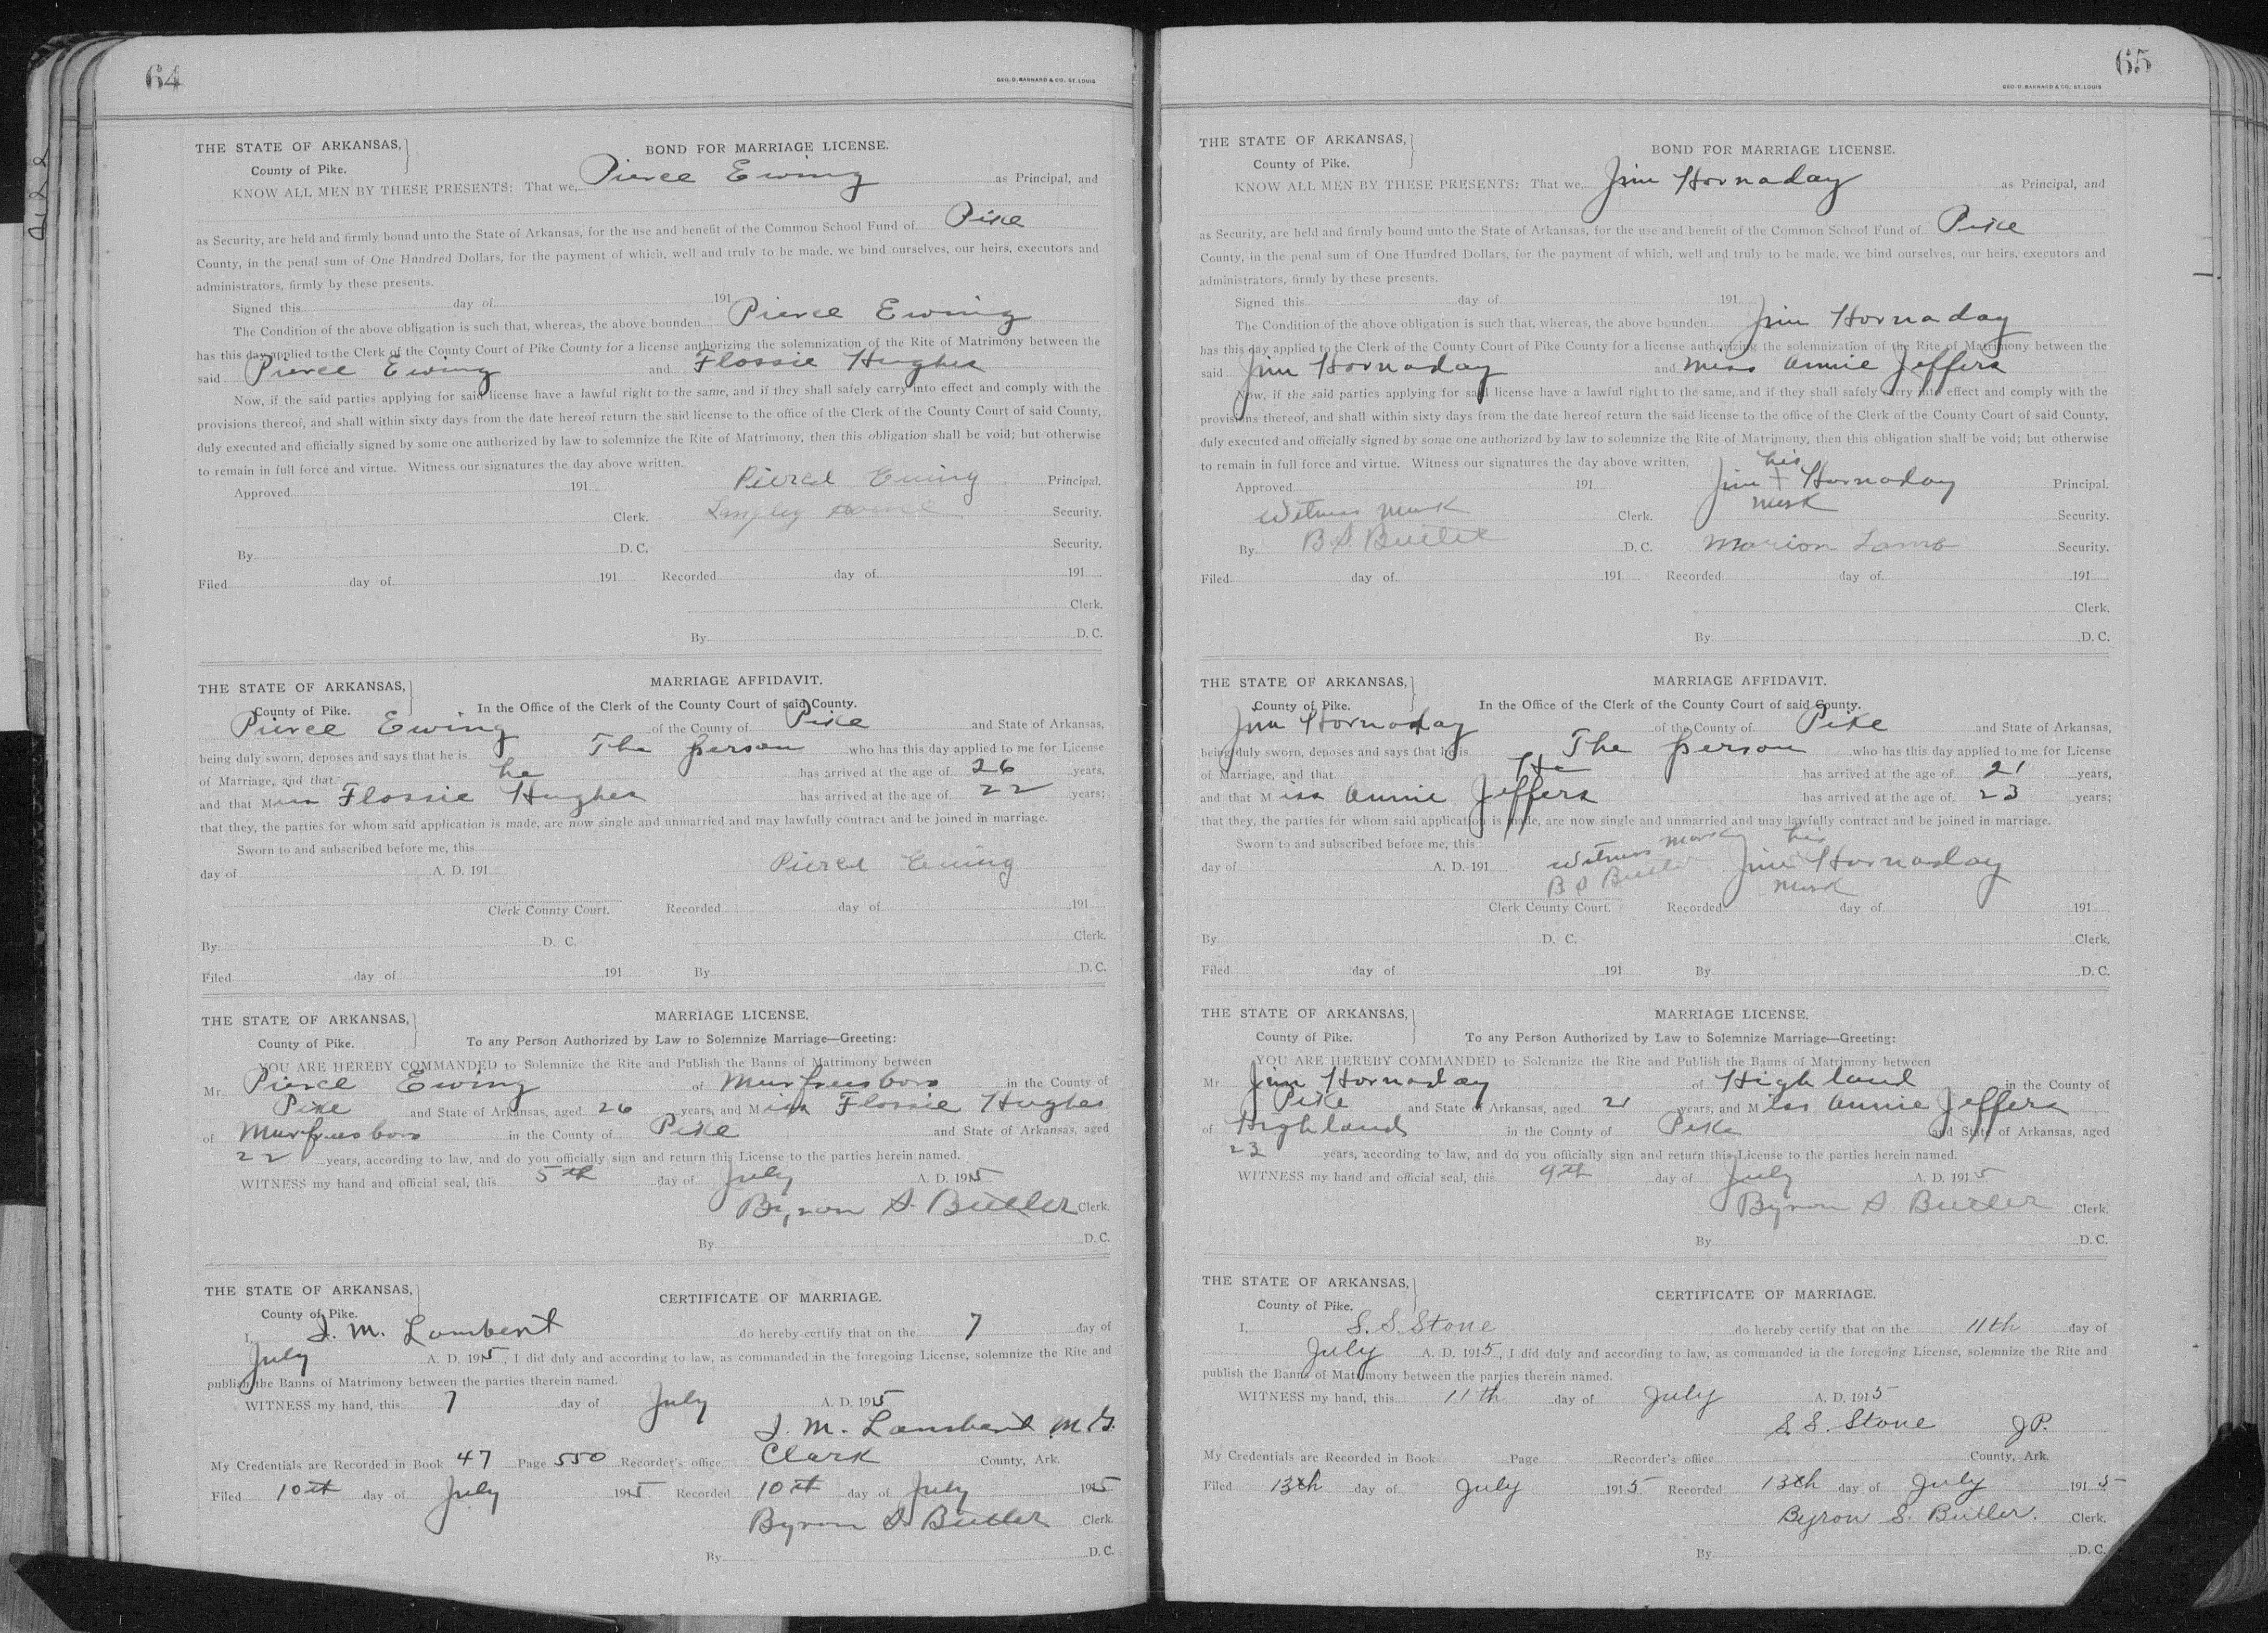 64
GEO. D. BARNARD & CO. ST. LOUIS
THE STATE OF ARKANSAS,
County of Pike.
BOND FOR MARRIAGE LICENSE.
KNOW ALL MEN BY THESE PRESENTS: That we, Pierce Ewing as Principal, and
as Security, are held and firmly bound unto the State of Arkansas, for the use and benefit of the Common School Fund of Pike
County, in the penal sum of One Hundred Dollars, for the payment of which, well and truly to be made, we bind ourselves, our heirs, executors and
administrators, firmly by these presents.
Signed this day of 191
The Condition of the above obligation is such that, whereas, the above bounden Pierce Ewing
has this day applied to the Clerk of the County Court of Pike County for a license authorizing the solemnization of the Rite of Matrimony between the
said Pierce Ewing and Flossie Hughes
Now, if the said parties applying for said license have a lawful right to the same, and if they shall safely carry into effect and comply with the
provisions thereof, and shall within sixty days from the date hereof return the said license to the office of the Clerk of the County Court of said County,
duly executed and officially signed by some one authorized by law to solemnize the Rite of Matrimony, then this obligation shall be void; but otherwise
to remain in full force and virtue. Witness our signatures the day above written.
Approved 191 Pierce Ewing Principal.
Clerk. Langley Security.
By D. C. Security.
Filed day of 191 Recorded day of 191
Clerk.
By D. C.
THE STATE OF ARKANSAS,
County of Pike.
MARRIAGE AFFIDAVIT.
In the Office of the Clerk of the County Court of said County.
Pierce Ewing of the County of Pike and State of Arkansas,
being duly sworn, deposes and says that he is The person who has this day applied to me for License
of Marriage, and that he has arrived at the age of 26 years,
and that Miss Flossie Hughes has arrived at the age of 22 years;
that they, the parties for whom said application is made, are now single and unmarried and may lawfully contract and be joined in marriage.
Sworn to and subscribed before me, this
day of A. D. 191 Pierce Ewing
Clerk County Court. Recorded day of 191
By D. C. Clerk.
Filed day of 191 By D. C.
THE STATE OF ARKANSAS,
County of Pike.
MARRIAGE LICENSE.
To any Person Authorized by Law to Solemnize Marriage—Greeting:
YOU ARE HEREBY COMMANDED to Solemnize the Rite and Publish the Banns of Matrimony between
Mr Pierce Ewing of Murfreesboro in the County of
Pike and State of Arkansas, aged 26 years, and Miss Flossie Hughes
of Murfreesboro in the County of Pike and State of Arkansas, aged
22 years, according to law, and do you officially sign and return this License to the parties herein named.
WITNESS my hand and official seal, this 5th day of July A. D. 1915
Byron S. Butler Clerk.
By D. C.
THE STATE OF ARKANSAS,
County of Pike.
CERTIFICATE OF MARRIAGE.
I, J. M. Lambert do hereby certify that on the 7 day of
July A. D. 1915, I did duly and according to law, as commanded in the foregoing License, solemnize the Rite and
publish the Banns of Matrimony between the parties therein named.
WITNESS my hand, this 7 day of July A. D. 1915
J. M. Lambert M.G.
My Credentials are Recorded in Book 47 Page 550 Recorder's office Clark County, Ark.
Filed 10th day of July 1915 Recorded 10th day of July 1915
Byron S. Butler Clerk.
By D. C.
65
GEO. D. BARNARD & CO. ST. LOUIS
THE STATE OF ARKANSAS,
County of Pike.
BOND FOR MARRIAGE LICENSE.
KNOW ALL MEN BY THESE PRESENTS: That we, Jim Hornaday as Principal, and
as Security, are held and firmly bound unto the State of Arkansas, for the use and benefit of the Common School Fund of Pike
County, in the penal sum of One Hundred Dollars, for the payment of which, well and truly to be made, we bind ourselves, our heirs, executors and
administrators, firmly by these presents.
Signed this day of 191
The Condition of the above obligation is such that, whereas, the above bounden Jim Hornaday
has this day applied to the Clerk of the County Court of Pike County for a license authorizing the solemnization of the Rite of Matrimony between the
said Jim Hornaday and Miss Annie Jeffers
Now, if the said parties applying for said license have a lawful right to the same, and if they shall safely carry into effect and comply with the
provisions thereof, and shall within sixty days from the date hereof return the said license to the office of the Clerk of the County Court of said County,
duly executed and officially signed by some one authorized by law to solemnize the Rite of Matrimony, then this obligation shall be void; but otherwise
to remain in full force and virtue. Witness our signatures the day above written.
his
Approved 191 Jim + Hornaday Principal.
mark
Witness mark Clerk. Security.
By B. S. Butler D. C. Marion Lamb Security.
Filed day of 191 Recorded day of 191
Clerk.
By D. C.
THE STATE OF ARKANSAS,
County of Pike.
MARRIAGE AFFIDAVIT.
In the Office of the Clerk of the County Court of said County.
Jim Hornaday of the County of Pike and State of Arkansas,
being duly sworn, deposes and says that he is The person who has this day applied to me for License
of Marriage, and that He has arrived at the age of 21 years,
and that Miss Annie Jeffers has arrived at the age of 23 years;
that they, the parties for whom said application is made, are now single and unmarried and may lawfully contract and be joined in marriage.
Sworn to and subscribed before me, this Witness mark his
day of A. D. 191 B S Butler Jim Hornaday
mark
Clerk County Court. Recorded day of 191
By D. C. Clerk.
Filed day of 191 By D. C.
THE STATE OF ARKANSAS,
County of Pike.
MARRIAGE LICENSE.
To any Person Authorized by Law to Solemnize Marriage—Greeting:
YOU ARE HEREBY COMMANDED to Solemnize the Rite and Publish the Banns of Matrimony between
Mr Jim Hornaday of Highland in the County of
Pike and State of Arkansas, aged 21 years, and Miss Annie Jeffers
of Highland in the County of Pike and State of Arkansas, aged
23 years, according to law, and do you officially sign and return this License to the parties herein named.
WITNESS my hand and official seal, this 9th day of July A. D. 1915
Byron S Butler Clerk.
By D. C.
THE STATE OF ARKANSAS,
County of Pike.
CERTIFICATE OF MARRIAGE.
I, S. S. Stone do hereby certify that on the 11th day of
July A. D. 1915, I did duly and according to law, as commanded in the foregoing License, solemnize the Rite and
publish the Banns of Matrimony between the parties therein named.
WITNESS my hand, this 11th day of July A. D. 1915
S. S. Stone J.P.
My Credentials are Recorded in Book Page Recorder's office County, Ark.
Filed 13th day of July 1915 Recorded 13th day of July 1915
Byron S. Butler. Clerk.
By D. C.